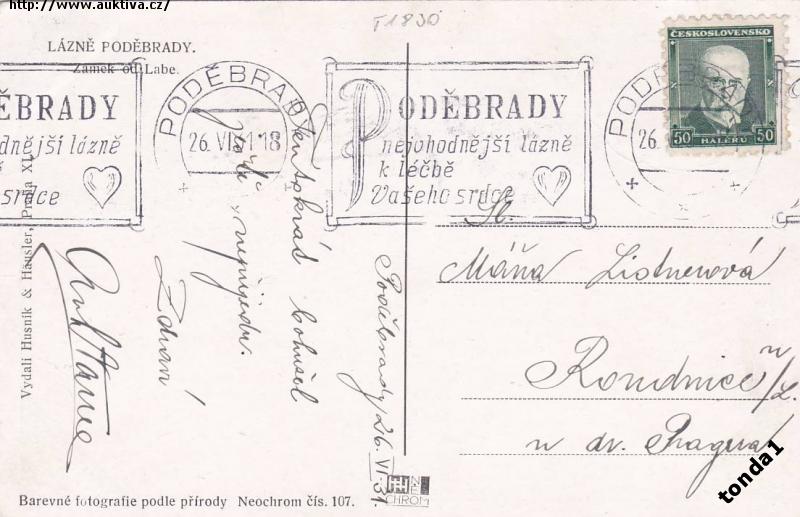 http://www.auktiva.cz/
T1830
LÁZNĚ PODĚBRADY.
Zámek od Labe.
ČESKOSLOVENSKO
50 HALÉŘŮ 50
PODĚBRADY
26. VI 31 18
PODĚBRADY
nejvhodnější lázně
k léčbě
Vašeho srdce
ĚBRADY
hodnější lázně
srdce
PODĚBRADY
26.
Tentokrád bohužel
nepřijedu.
Zdraví
Poděbrady 26.VI.31.
Sl.
Máňa Listnerová
Roudnice n/L.
u dr. Pragra
Vydali Husník & Häusler, Praha XI.
Barevné fotografie podle přírody Neochrom čís. 107.
NEO
CHROM
tonda1